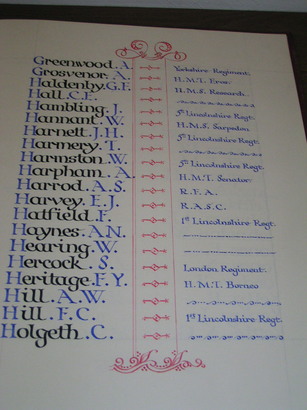 Greenwood. A. Yorkshire Regiment.
Grosvenor. A. H.M.T. Eros.
Haldenby. G.F. H.M.S. Research.
Hall. C.E.
Hambling. J. 5th Lincolnshire Regt.
Hannant. W. H.M.S. Sarpedon.
Harnett. J.H. 5th Lincolnshire Regt.
Harmery. T.
Harmston. W. 5th Lincolnshire Regt.
Harpham. A. H.M.T. Senator.
Harrod. A.S. R.F.A.
Harvey. E.J. R.A.S.C.
Hatfield. F. 1st Lincolnshire Regt.
Haynes. A.N.
Hearing. W.
Hercock. S. London Regiment.
Heritage. F.Y. H.M.T. Borneo
Hill. A.W.
Hill. F.C. 1st Lincolnshire Regt.
Holgeth. C.